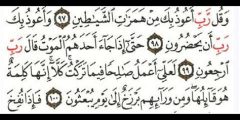 وَقُل رَّبِّ أَعُوذُ بِكَ مِنْ هَمَزَٰتِ ٱلشَّيَٰطِينِ ٩٧ وَأَعُوذُ بِكَ
رَبِّ أَن يَحْضُرُونِ ٩٨ حَتَّىٰٓ إِذَا جَآءَ أَحَدَهُمُ ٱلْمَوْتُ قَالَ رَبِّ
ٱرْجِعُونِ ٩٩ لَعَلِّىٓ أَعْمَلُ صَٰلِحًا فِيمَا تَرَكْتُ كَلَّآ إِنَّهَا كَلِمَةٌ
هُوَ قَآئِلُهَا وَمِن وَرَآئِهِم بَرْزَخٌ إِلَىٰ يَوْمِ يُبْعَثُونَ ١٠٠ فَإِذَا نُفِخَ